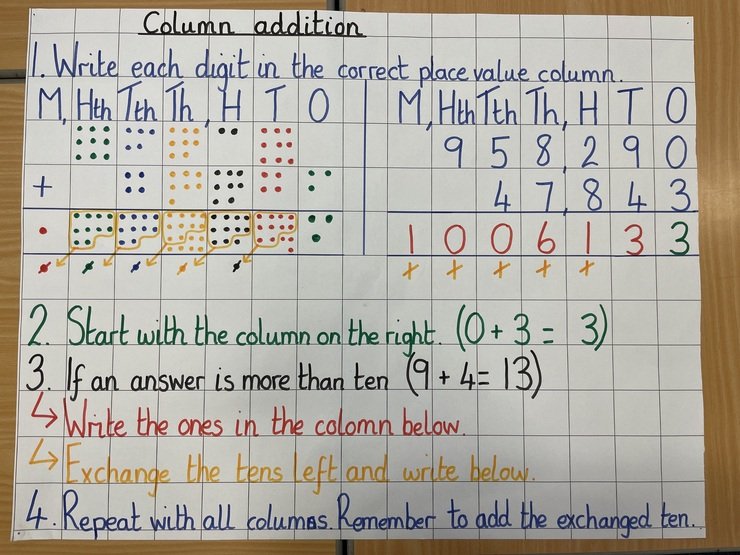 Column addition
1. Write each digit in the correct place value column.
M, Hth Tth Th, H T O
+
M, Hth Tth Th, H T O
9 5 8, 2 9 0
4 7, 8 4 3
1 0 0 6 1 3 3
+ + + + +
2. Start with the column on the right. (0 + 3 = 3)
3. If an answer is more than ten (9 + 4 = 13)
↳ Write the ones in the colomn below.
↳ Exchange the tens left and write below.
4. Repeat with all columns. Remember to add the exchanged ten.